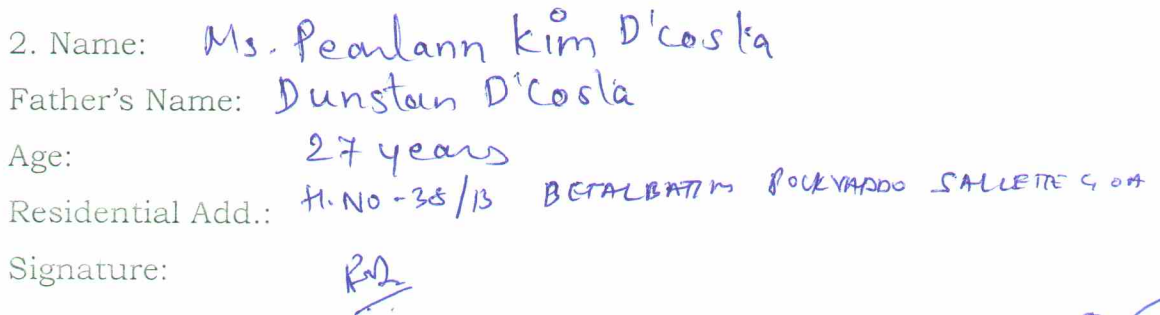 2. Name: Ms. Pearlann Kim D'costa
Father's Name: Dunstan D'Costa
Age: 27 years
Residential Add.: H.No - 38/B BETALBATIM POCKVADDO SALLETTE GOA
Signature: